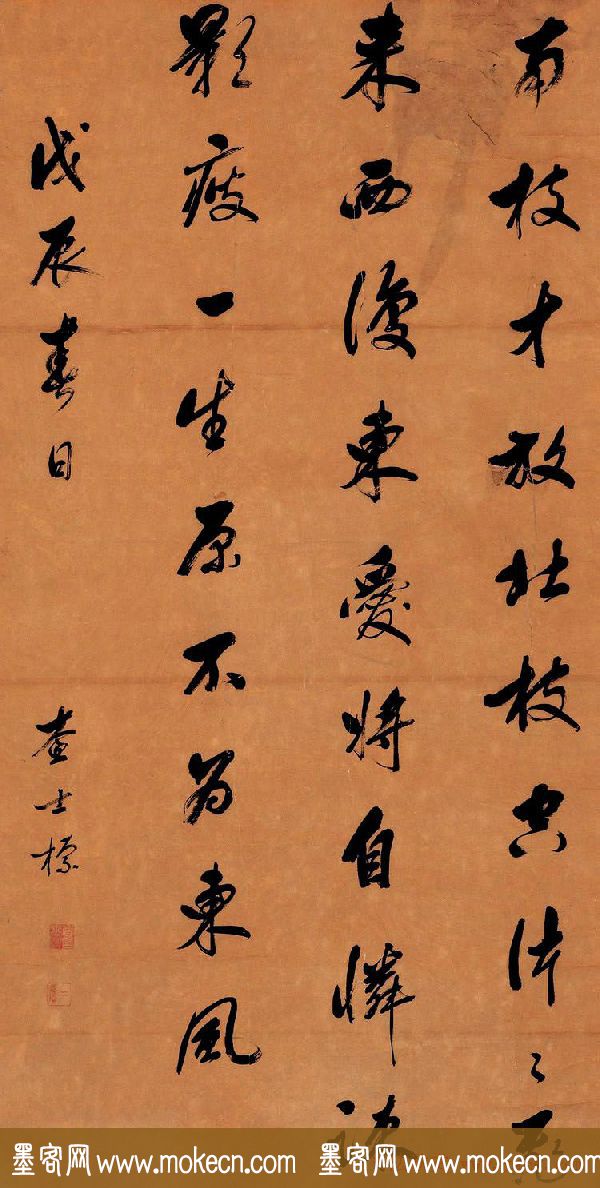 南枝才放北枝空片〻飛
來西復東愛將自憐
影瘦一生原不為東風
戊辰春日
查士標
墨客网 www.mokecn.com 墨客网 www.mokecn.com